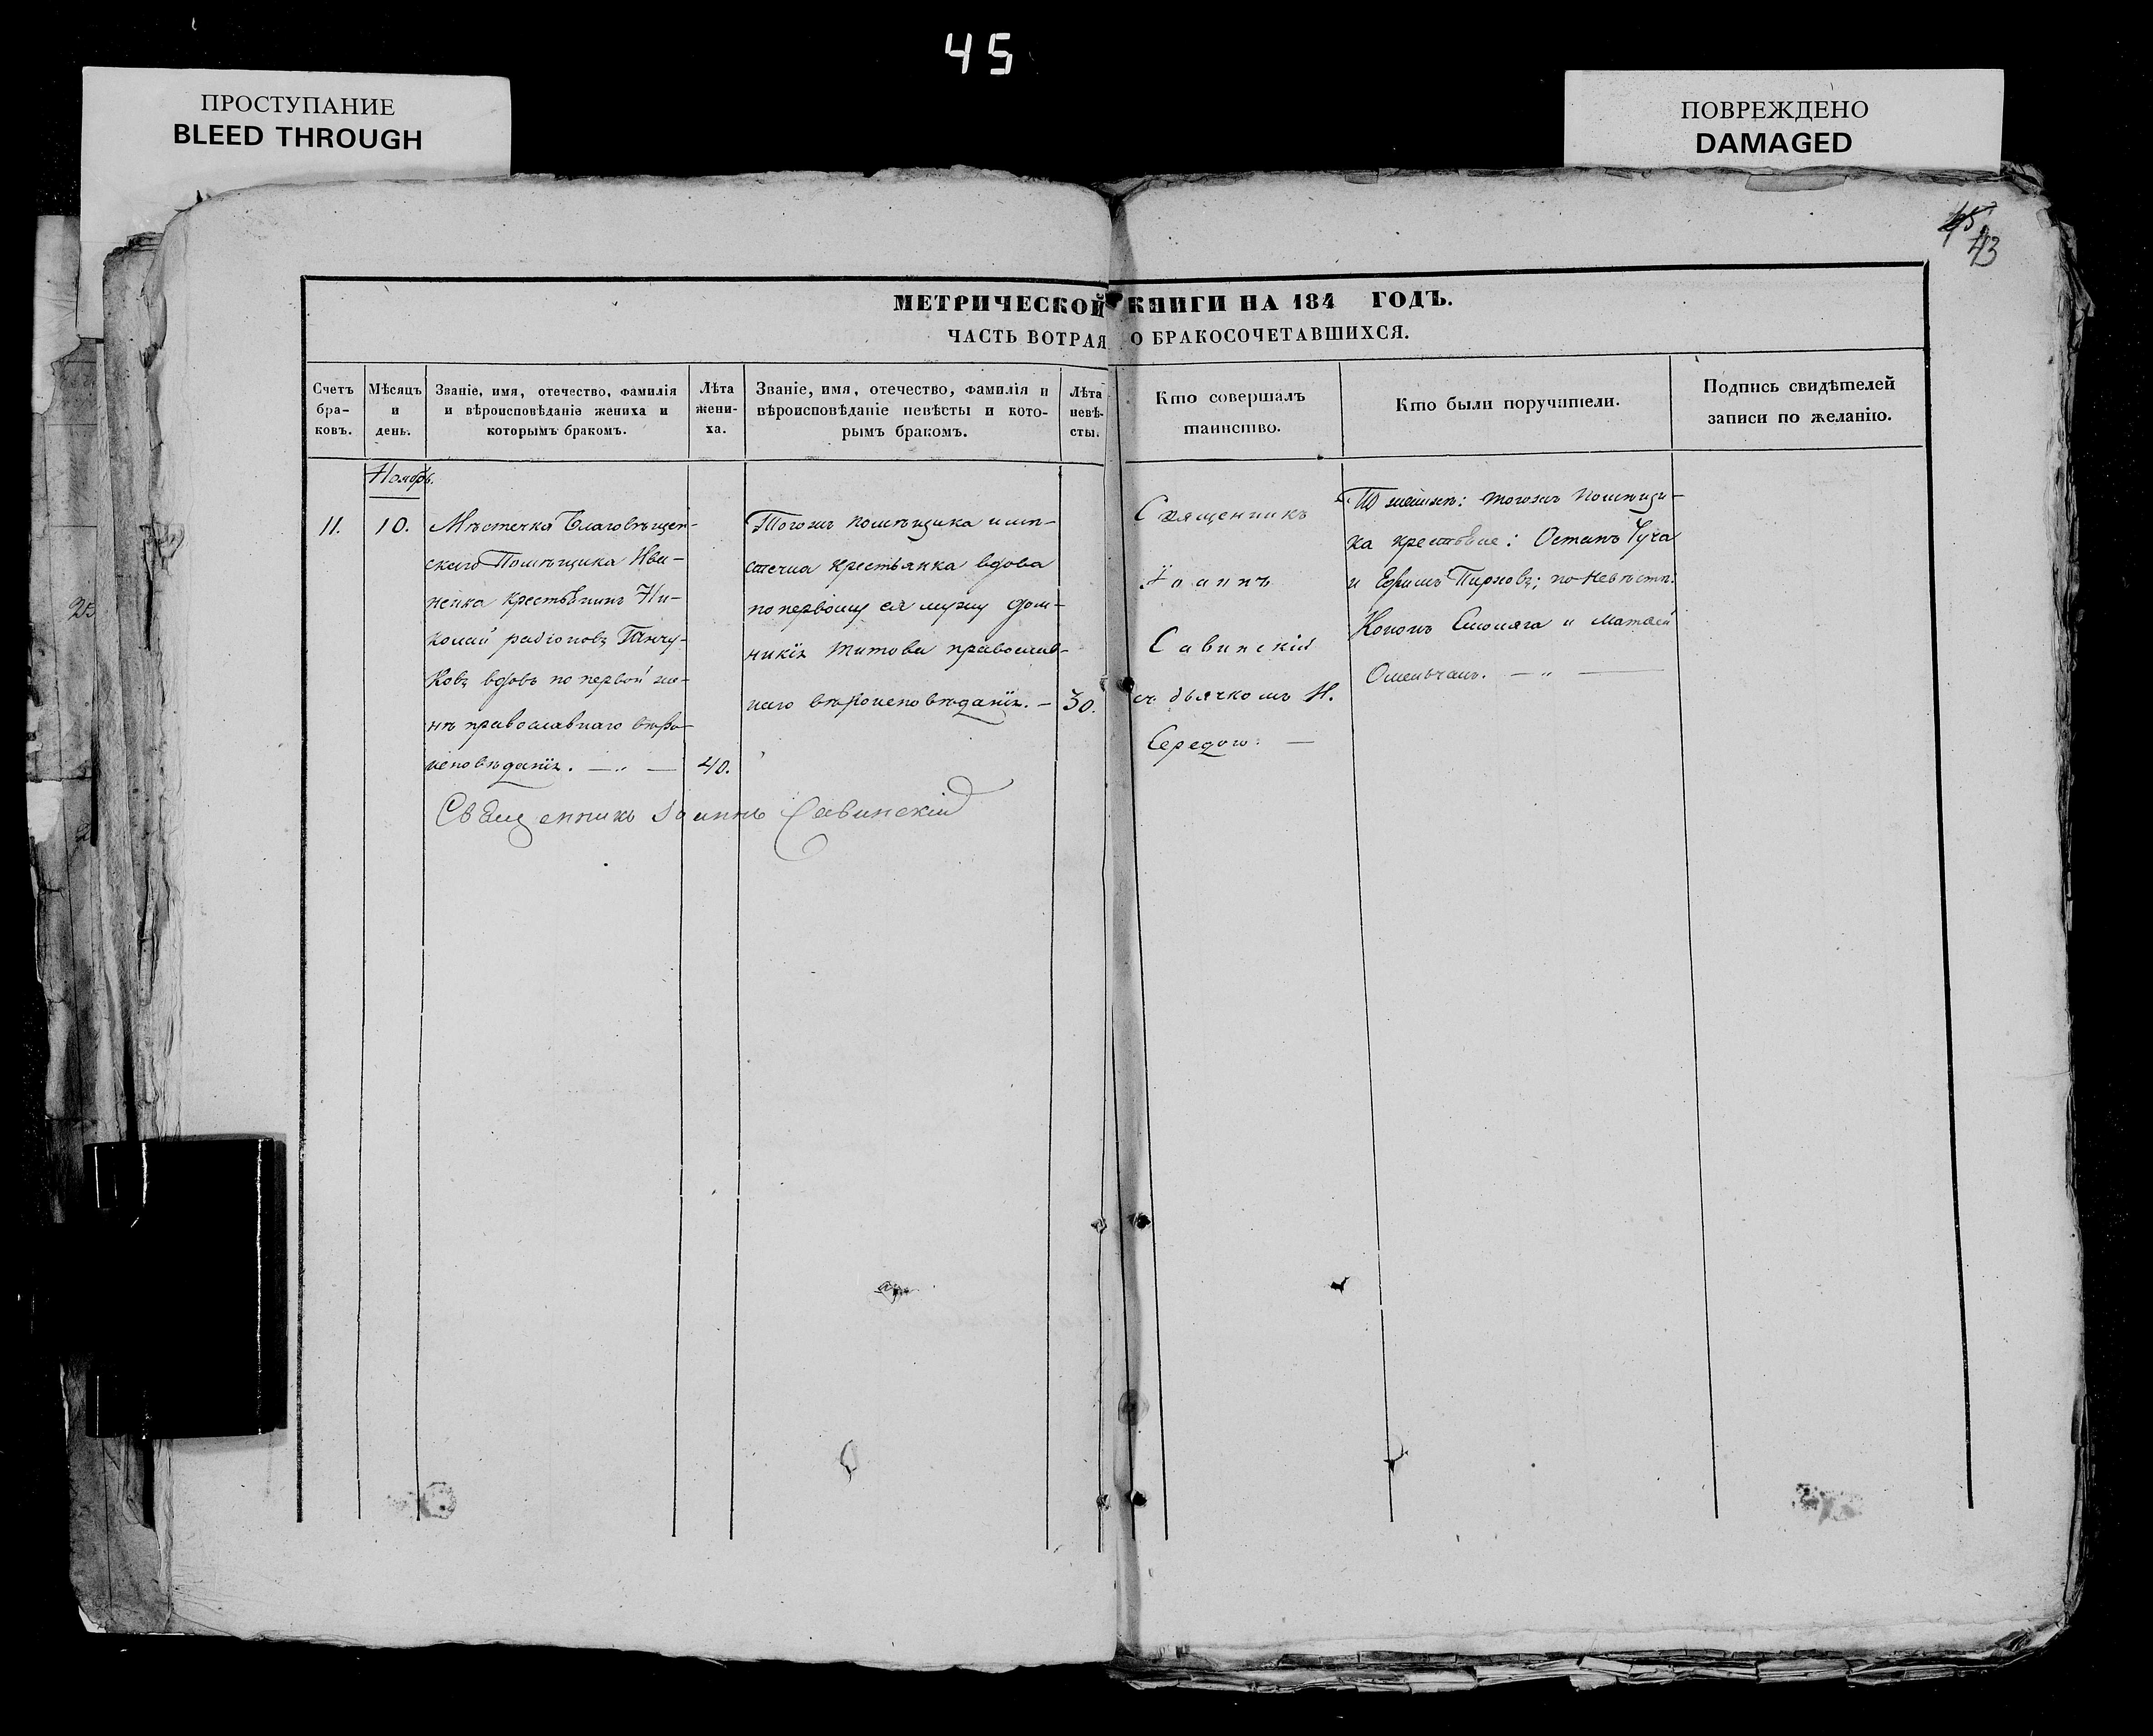 45
ПРОСТУПАНИЕ
BLEED THROUGH
ПОВРЕЖДЕНО
DAMAGED
45
43
МЕТРИЧЕСКОЙ КНИГИ НА 184 ГОДЪ.
ЧАСТЬ ВОТРАЯ О БРАКОСОЧЕТАВШИХСЯ.
Счетъ
бра-
ковъ.
Мѣсяцъ
и
день.
Званіе, имя, отечество, фамилія
и вѣроисповѣданіе жениха и
которымъ бракомъ.
Лѣта
жени-
ха.
Званіе, имя, отечество, фамилія и
вѣроисповѣданіе невѣсты и кото-
рымъ бракомъ.
Лѣта
невѣ-
сты.
Кто совершалъ
таинство.
Кто были поручители.
Подпись свидѣтелей
записи по желанію.
Ноябрь.
11.
10.
Мѣстечка Благовѣщен-
скаго Помѣщика Ива-
ненка крестьянинъ Ни-
колай радіоновъ
вдовъ по первой же-
нѣ православнаго вѣро-
исповѣданія. — „ —
40.
Тогожъ помѣщика и мѣ-
стечка крестьянка вдова
по первому ея мужу дом-
никія Титова православ-
наго вѣроисповѣданія. —
30.
Священникъ
Іоаннъ
Савинскій
съ дьячкомъ И.
Середою. —
По женихѣ: тогожъ помѣщи-
ка крестьяне: Остапъ Чуча
и Ефимъ; по невѣстѣ:
Кононъ и Матвей
— „ —
Священникъ Іоаннъ Савинскій